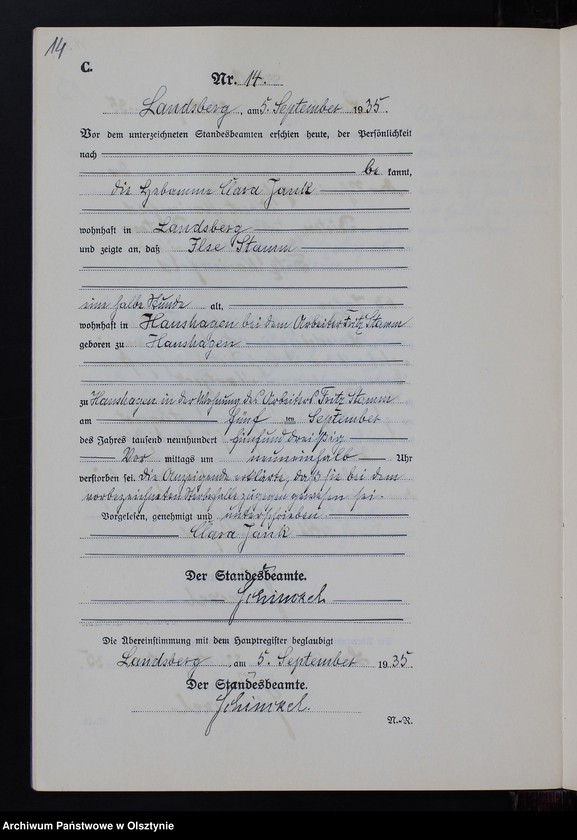 14
C.
Nr. 14.
Landsberg, am 5. September 1935.
Vor dem unterzeichneten Standesbeamten erschien heute, der Persönlichkeit
nach
be kannt,
die Hebamme Clara Jank
wohnhaft in Landsberg
und zeigte an, daß Ilse Stamm
eine halbe Stunde alt,
wohnhaft in Hanshagen bei dem Arbeiter Fritz Stamm
geboren zu Hanshagen
zu Hanshagen in der Wohnung des Arbeiters Fritz Stamm
am fünf ten September
des Jahres tausend neunhundert fünfunddreißig
Vor mittags um neuneinhalb Uhr
verstorben sei. Die Anzeigende erklärte, daß sie bei dem
vorbezeichneten Sterbefalle zugegen gewesen sei.
Vorgelesen, genehmigt und unterschrieben
Clara Jank
Der Standesbeamte.
Schinckel
Die Übereinstimmung mit dem Hauptregister beglaubigt
Landsberg, am 5. September 1935.
Der Standesbeamte.
Schinckel.
N.-R.
Archiwum Państwowe w Olsztynie